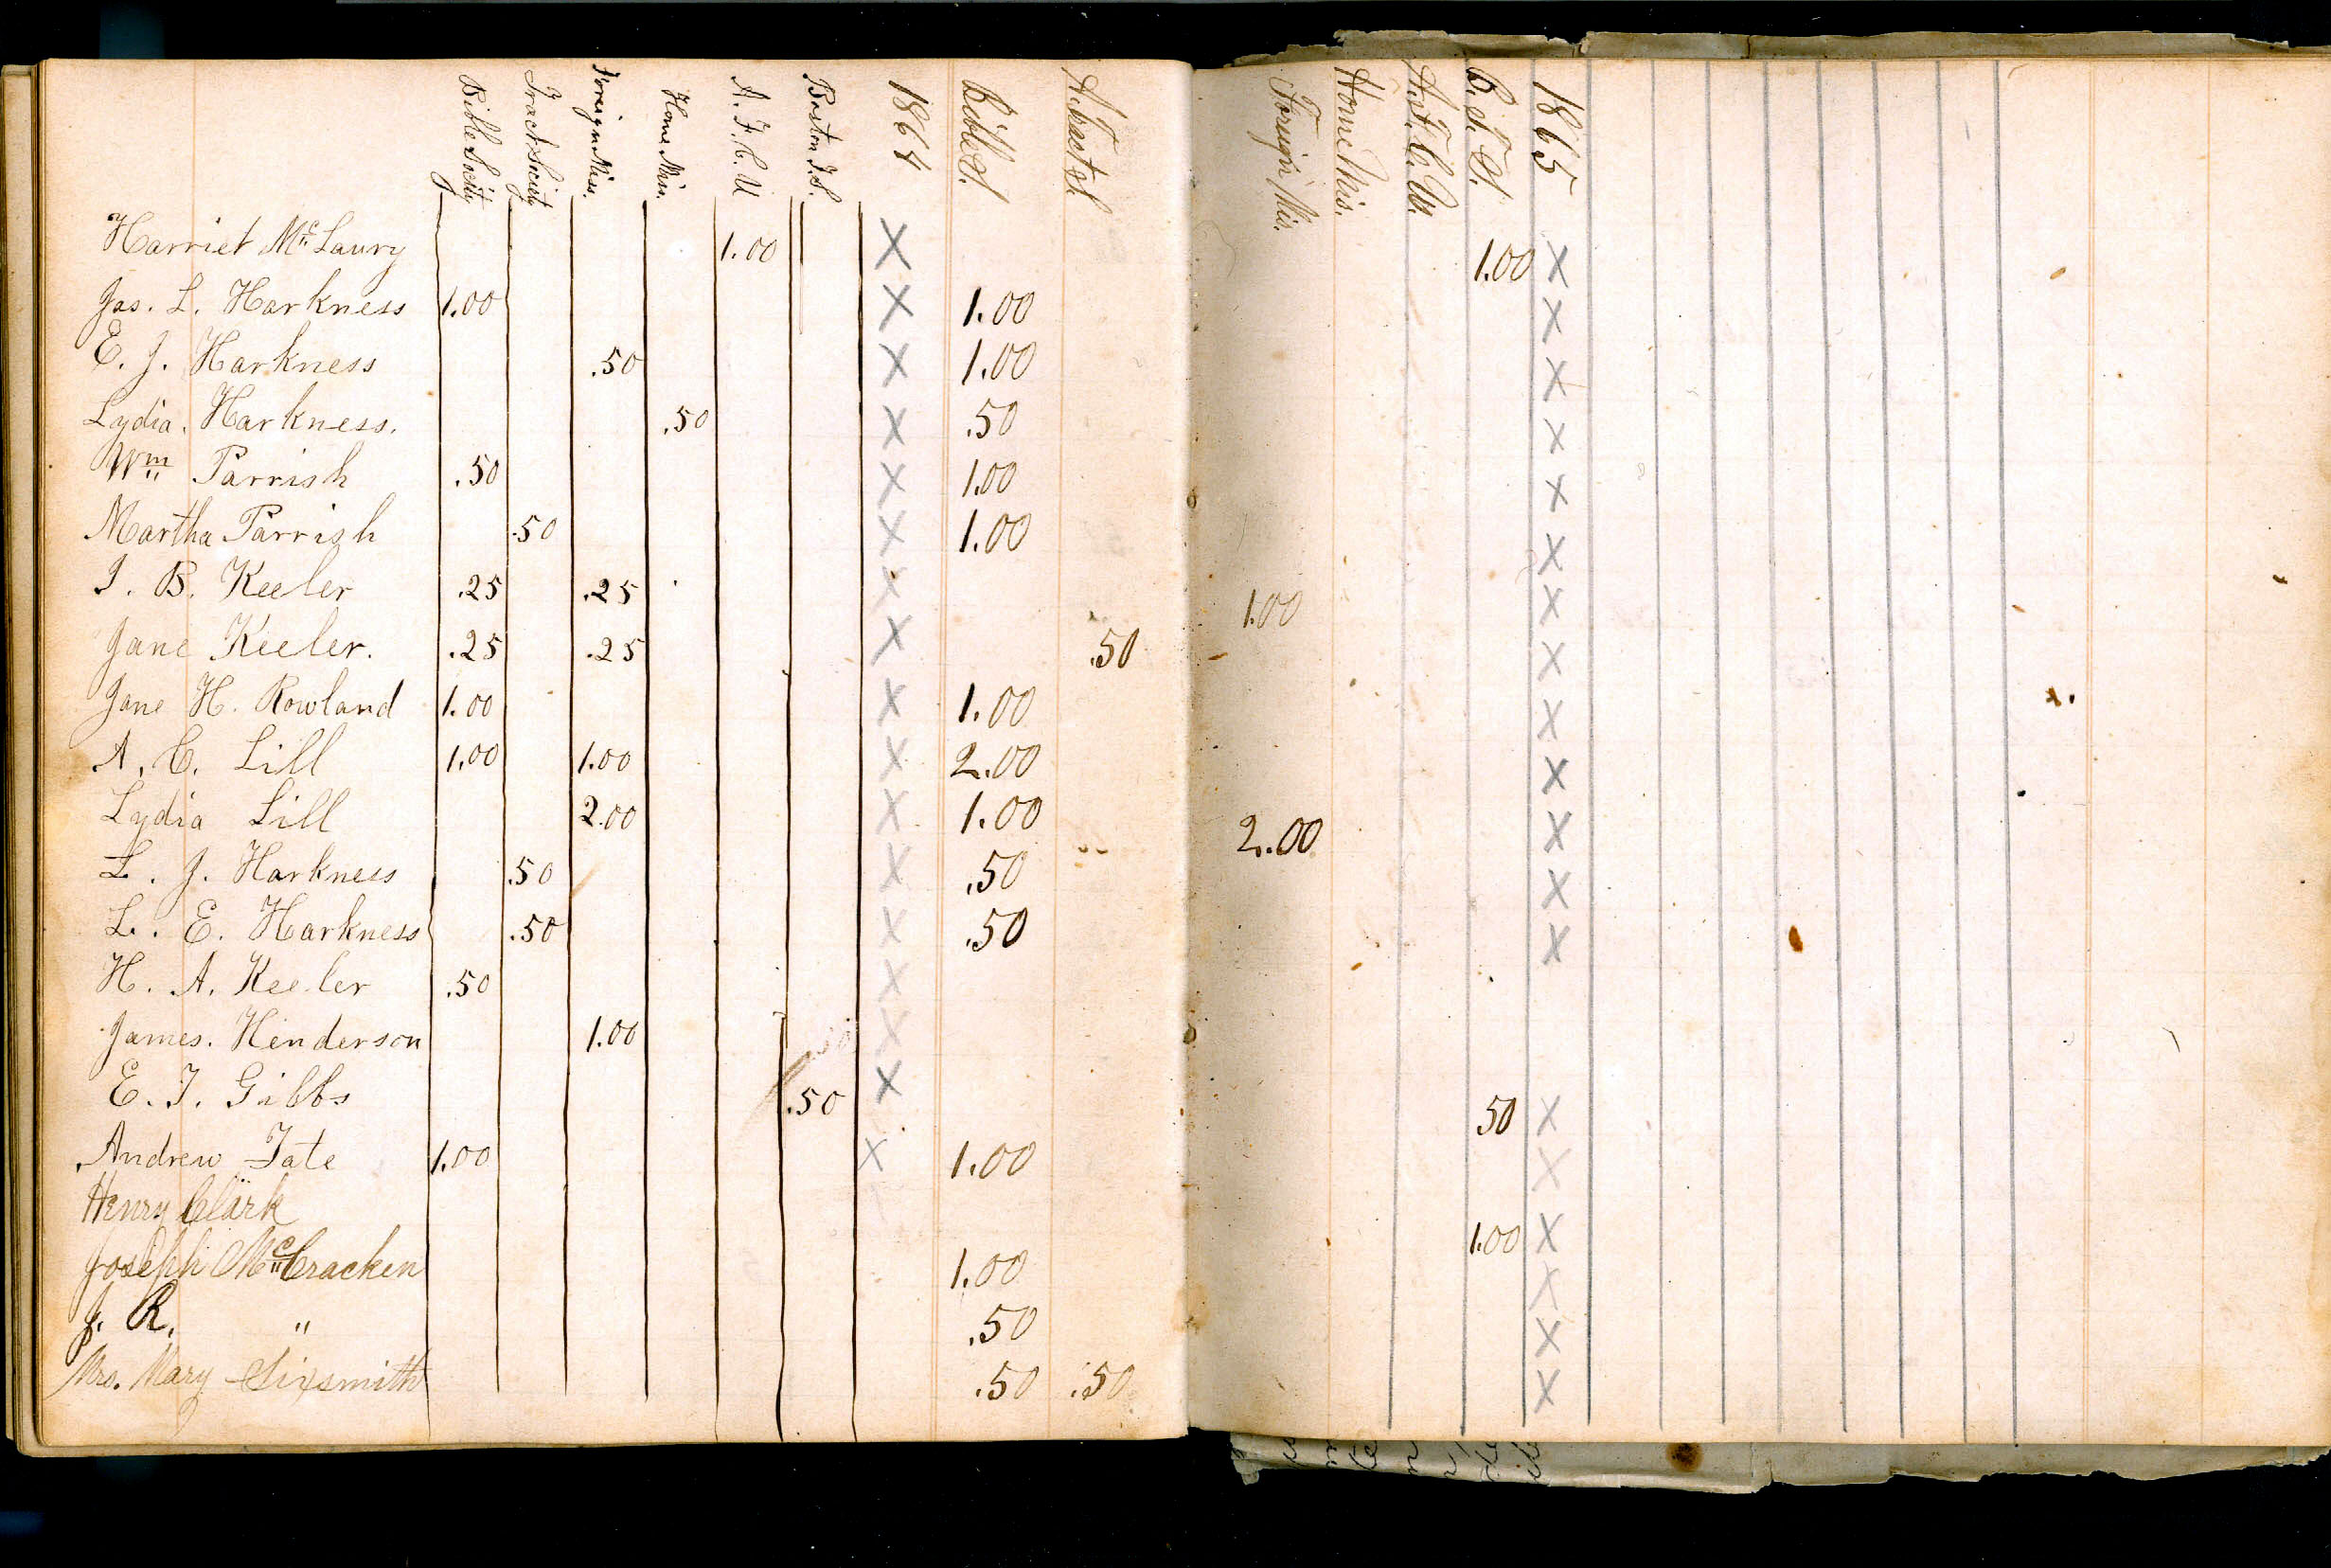 Bible Society Tract Society Foreign Miss. Home Miss. A. F. C. U Boston T. S. 1864 Bible S. A. Tract S. Foreign Mis. Home Mis. A. F. C. U. B. T. S. 1865
Harriet Mc Laury 1.00 X 1.00 X
Jas. L. Harkness 1.00 X 1.00 X
E. J. Harkness .50 X 1.00 X
Lydia. Harkness. .50 X .50 X
Wm Parrish .50 X 1.00 X
Martha Parrish .50 X 1.00 X
I. B. Keeler .25 .25 X 1.00 X
Jane Keeler. .25 .25 X .50 X
Jane H. Rowland 1.00 X 1.00 X
A. C. Lill 1.00 1.00 X 2.00 X
Lydia Lill 2.00 X 1.00 2.00 X
L. J. Harkness .50 X .50 X
L. E. Harkness .50 X .50 X
H. A. Keeler .50 X
James. Henderson 1.00 X
E. T. Gibbs .50 X 50 X
Andrew Tate 1.00 X 1.00 X
Henry Clark 1.00 X
Joseph Mc Cracken 1.00 X
J. R. " .50 X
Mrs. Mary Sixsmith .50 .50 X